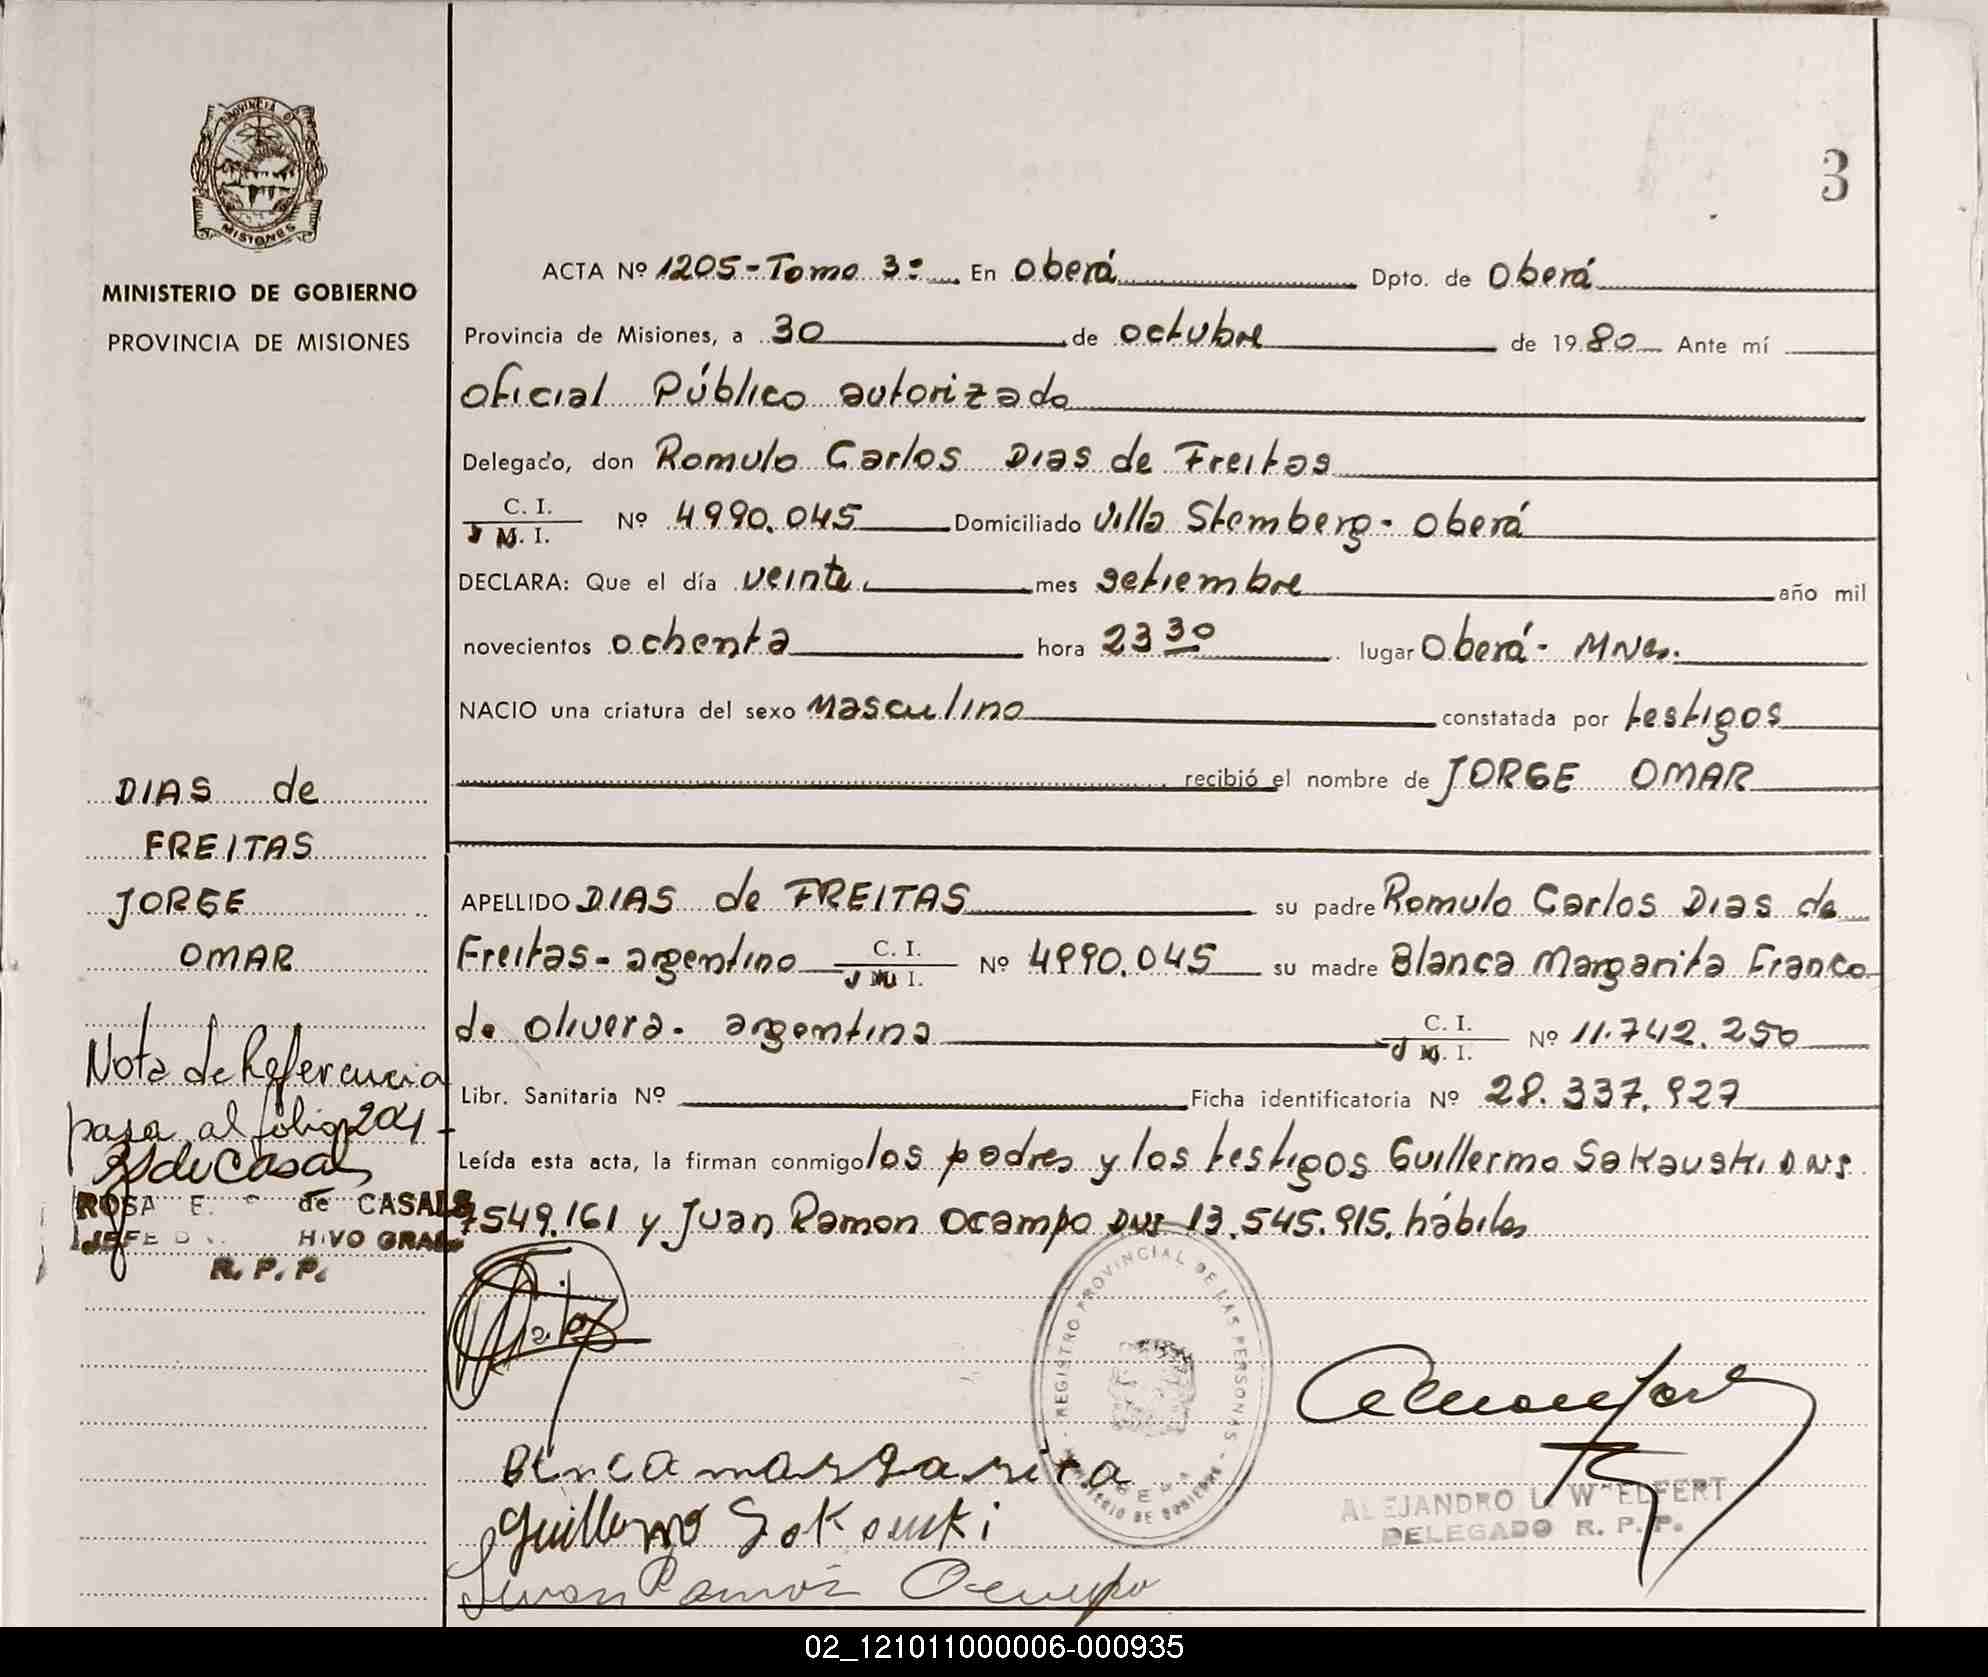 PROVINCIA D
MISIONES
MINISTERIO DE GOBIERNO
PROVINCIA DE MISIONES
3
ACTA Nº 1205-Tomo 3º En Oberá Dpto. de Oberá
Provincia de Misiones, a 30 de octubre de 1980 Ante mí
oficial Público autorizado
Delegado, don Romulo Carlos Dias de Freitas
C. I.
M. I. Nº 4990.045 Domiciliado Villa Stemberg - Oberá
DECLARA: Que el día veinte mes setiembre año mil
novecientos ochenta hora 23 30 lugar Oberá - MNes.
NACIO una criatura del sexo Masculino constatada por testigos
recibió el nombre de JORGE OMAR
APELLIDO DIAS de FREITAS su padre Romulo Carlos Dias de
Freitas - argentino C. I. M. I. Nº 4990.045 su madre Blanca Margarita Franco
de olivera - argentina C. I. M. I. Nº 11.742.250
Libr. Sanitaria Nº Ficha identificatoria Nº 28.337.927
Leída esta acta, la firman conmigo los padres y los testigos Guillermo Sakauski DNI
7.549.161 y Juan Ramon Ocampo DNI 13.545.915. hábiles
DIAS de
FREITAS
JORGE
OMAR
Nota de Referencia
pasa al folio 204
de Casals
ROSA E. de CASALS
JEFE HIVO GRAL.
R. P. P.
REGISTRO PROVINCIAL DE LAS PERSONAS
MINISTERIO DE GOBIERNO
Blnca margarita
Guillermo Sakauski
Juan Ramón Ocampo
ALEJANDRO L. W ELFERT
DELEGADO R. P. P.
02_121011000006-000935